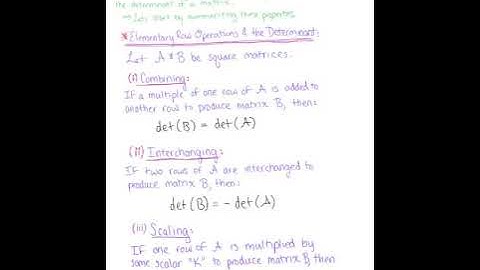 the determinant of a matrix.
→ Let's start by summarizing these properties.
* Elementary Row Operations & the Determinant:
Let A & B be square matrices.
(i) Combining:
If a multiple of one row of A is added to
another row to produce matrix B, then:
det(B) = det(A)
(ii) Interchanging:
IF two rows of A are interchanged to
produce matrix B, then:
det(B) = - det(A)
(iii) Scaling:
IF one row of A is multiplied by
some scalar "K" to produce matrix B, then